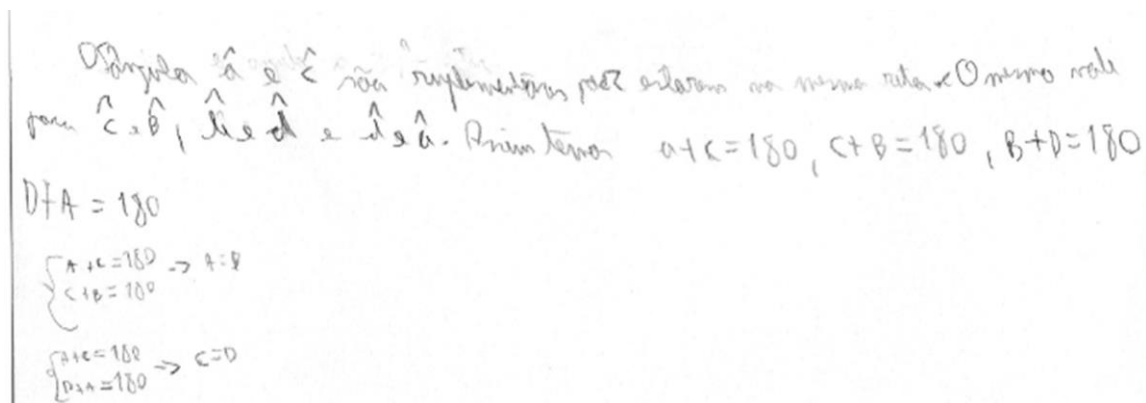 Os ângulos â e ĉ são suplementares pois estaram na mesma reta. O mesmo vale
para ĉ e B̂, b̂ e d̂ e d̂ e â. Assim temos a+c=180, C+B=180, B+D=180
D+A = 180
A+C=180 -> A=B
C+B=180
A+C=180 -> C=D
D+A=180